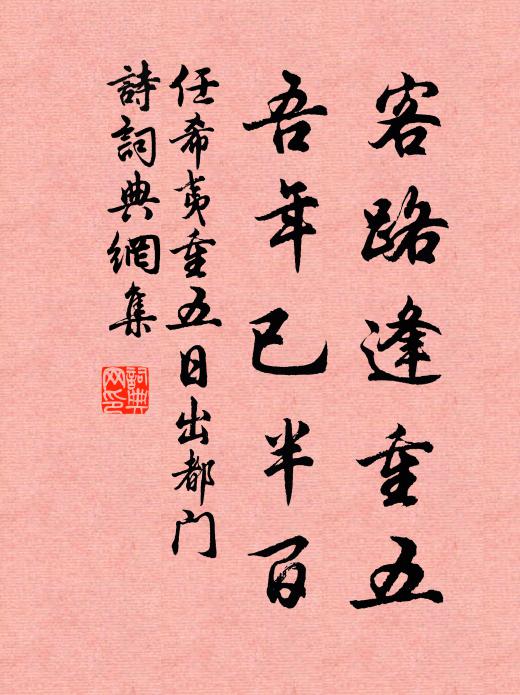 客路逢重五
吾年已半百
任希夷重五日出都门
詩詞典網集
詞典网印